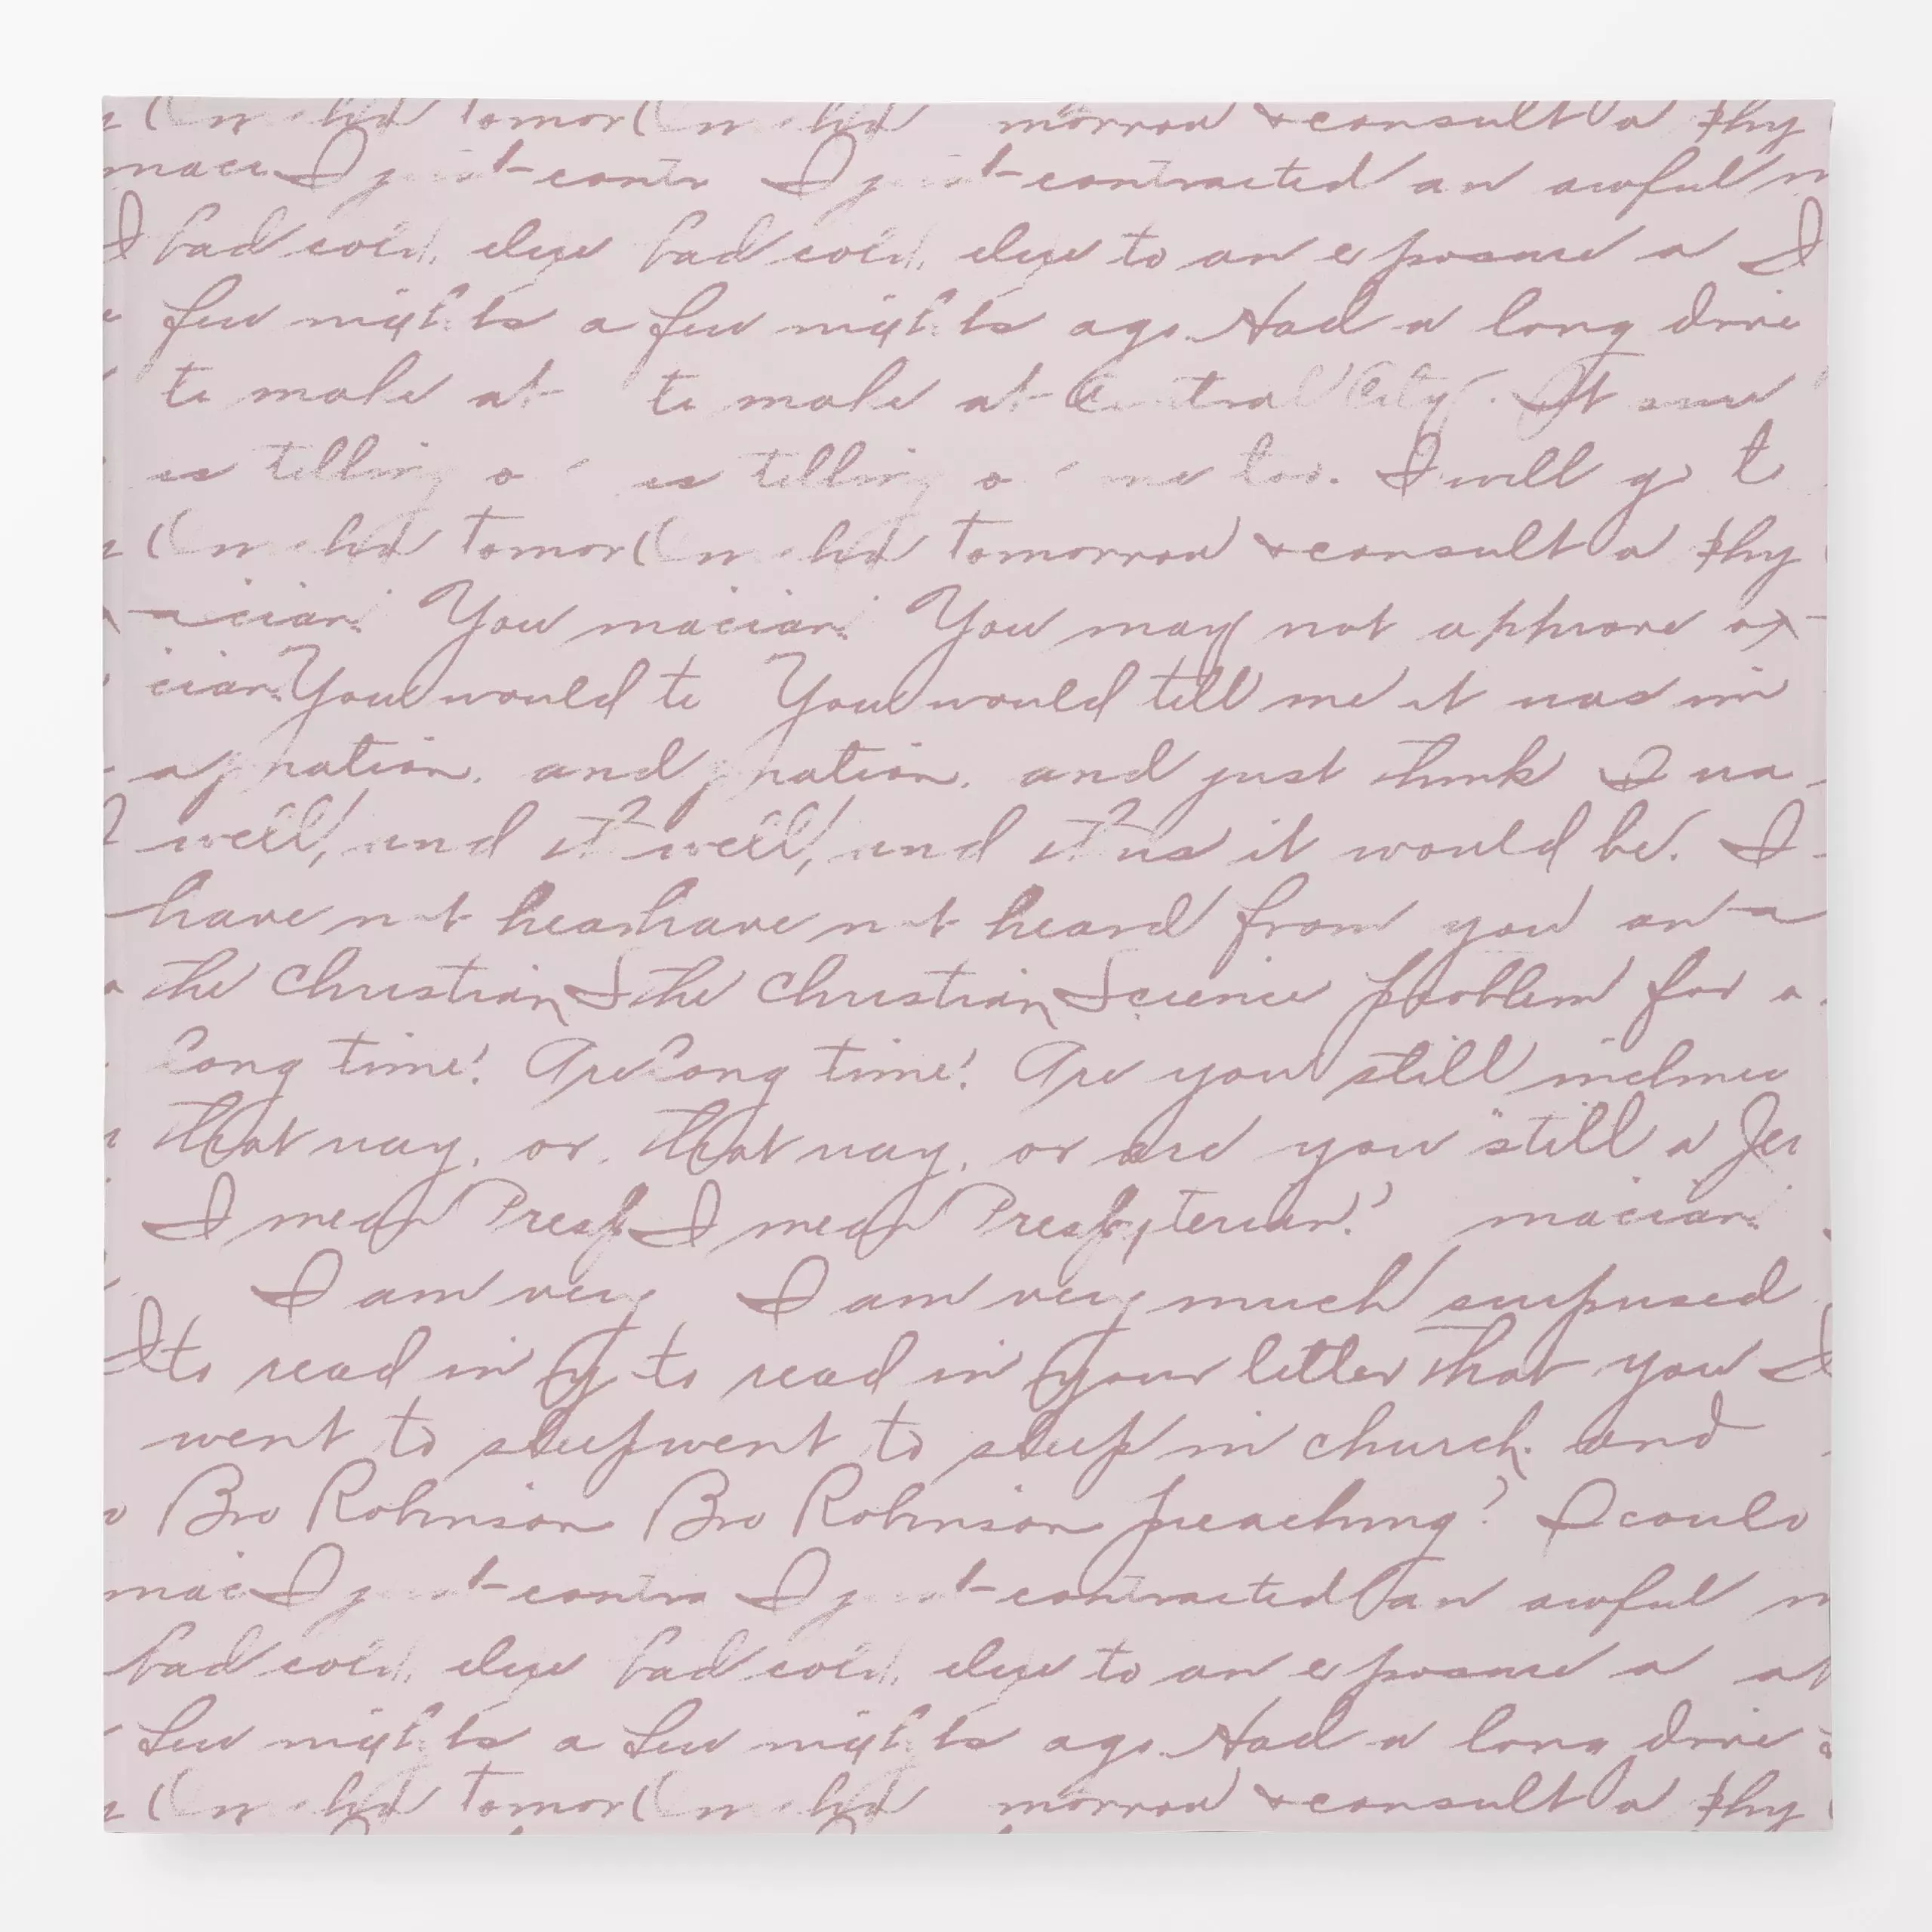 tomor morrow & consult a phy
I contr I contracted an awful
I bad cold, due bad cold, due to an exposure a I
few nights a few nights ago. Had a long drive
to make at to make at Central City. It sure
is telling o is telling o me too. I will go to
tomor tomorrow & consult a phy
sician. You may not approve of
cian. You would te You would tell me it was im
agination. and gination. and just think I wa
well, and it well, and it us it would be. I
have not hear have not heard from you on a
the Christian S the Christian Science problem for a
long time! Are long time! Are you still incline
that way, or, that way, or are you still a Jew
I mean Presb I mean Presbyterian?
I am very I am very much surprised
I to read in y to read in your letter that you I
went to sleep went to sleep in church and
Bro Robinson Bro Robinson preaching? I could
I contra I contracted an awful
bad cold, due bad cold, due to an exposure a
few nights a few nights ago. Had a long drive
tomor morrow & consult a phy